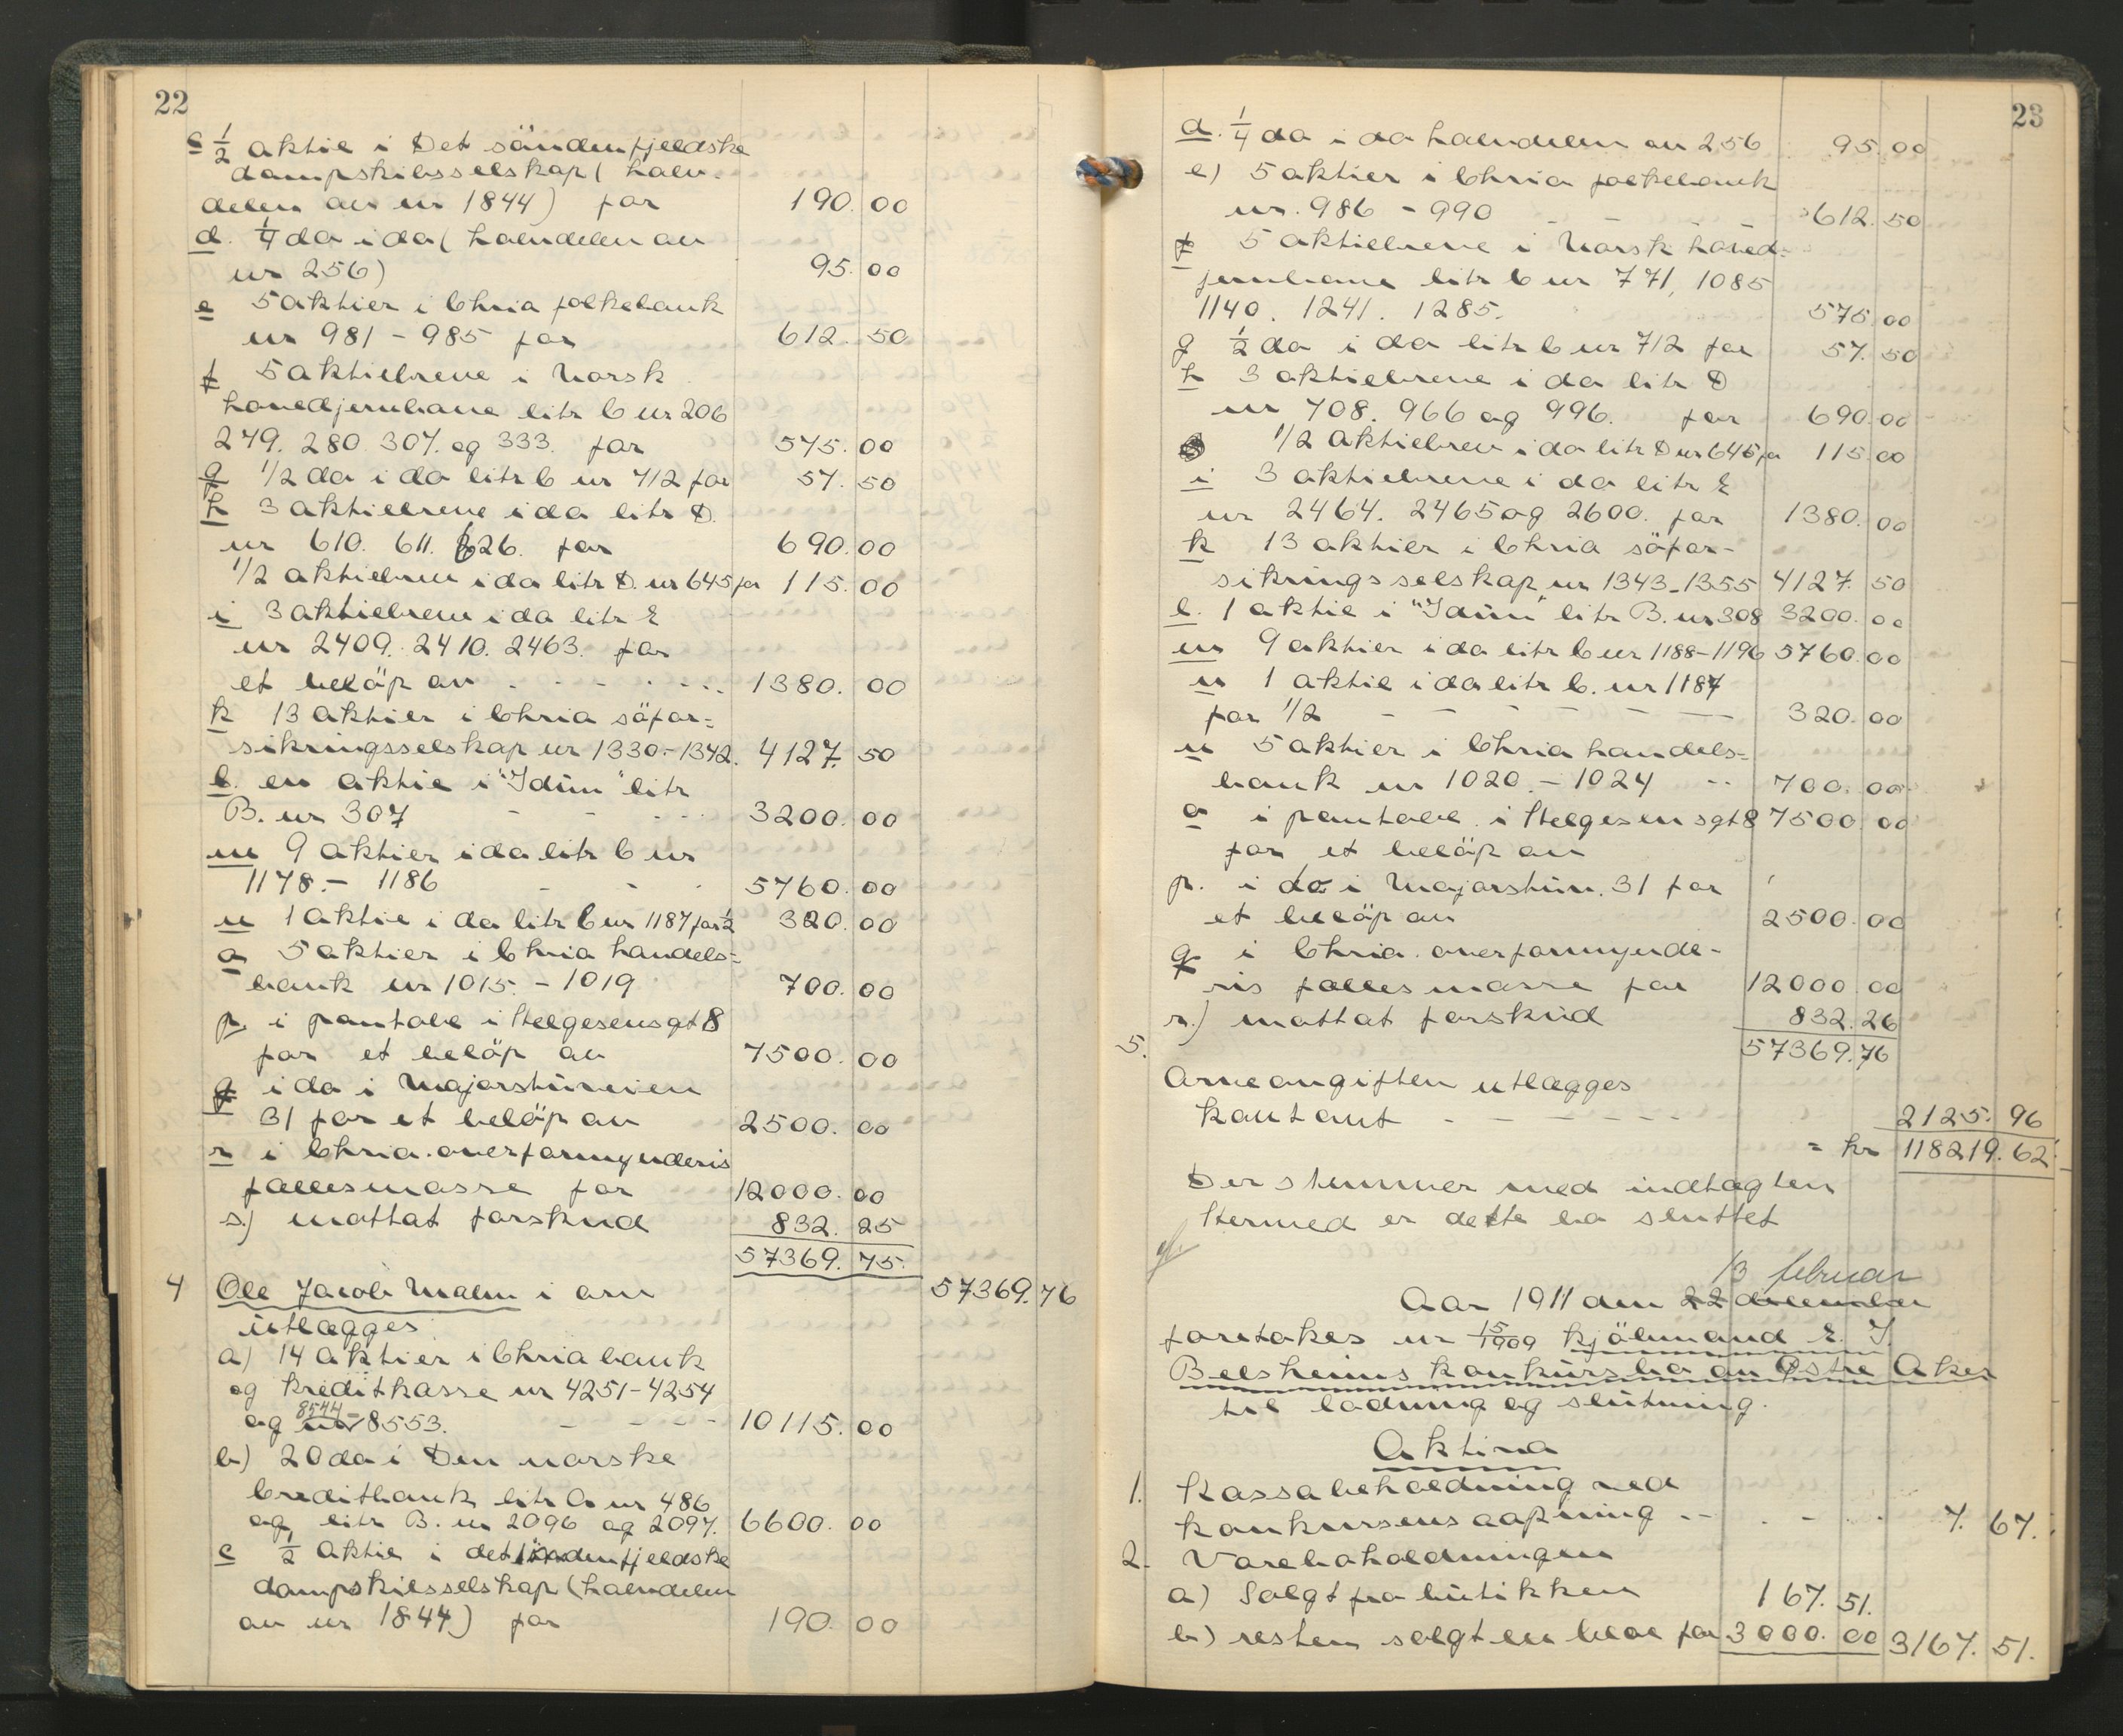 22
c ½ aktie i Det söndenfjeldske
dampskibsselskap ( halv-
delen av nr 1844) for 190. 00
d. ¼ do i do ( halvdelen av
nr 256) 95. 00
e 5 aktier i Chria folkebank
nr 981 - 985 for 612. 50
f 5 aktiebreve i Norsk
hovedjernbane litr C nr 206
279. 280. 307. og 333. for 575. 00
g 1/2 do i do litr C nr 712 for 57. 50
h 3 aktiebreve i do litr D.
nr 610. 611. 626. for 690. 00
1/2 aktiebrev i do litr D. nr 645 for 115. 00
i 3 aktiebrev i do litr E
nr 2409. 2410. 2463. for
et beløp av - - - - - 1380. 00
k 13 aktier i Chria söfor=
sikringsselskap nr 1330.- 1342. 4127. 50
l. en aktie i "Idun" litr
B. nr 307 - - - 3200. 00
m 9 aktier i do litr C nr
1178.- 1186 - - 5760. 00
n 1 aktie i do litr C nr 1187 for ½ 320. 00
o 5 aktier i Chria handels=
bank nr 1015. - 1019 700. 00
p. i pantobl i Helgesensgt 8
for et beløp av 7500. 00
q i do i Majorstuveien
31 for et beløp av 2500. 00
r i Chria. overformynderis
fællesmasse for 12000. 00
s.) mottat forskud 832. 25
57369. 75.
4 Ole Jacob Malm i arv 57369. 76
utlægges
a) 14 aktier i Chria bank
og kreditkasse nr 4251-4254
og 8544- 8553. - - - - 10115. 00
b) 20 do i Den norske
Creditbank litr A nr 486
og litr B. nr 2096 og 2097. 6600. 00
c ½ aktie i det söndenfjeldske
dampskibsselskap (halvdelen
av nr 1844) for 190. 00
23
d. ¼ do i do halvdelen av 256 95. 00
e) 5 aktier i Chria folkebank
nr. 986 - 990 - - - 612. 50
f 5 aktiebreve i Norsk hoved=
jernbane litr C nr 771, 1085
1140. 1241. 1285. 575. 00
g ½ do i do litr C nr 712 for 57. 50
h 3 aktiebreve i do litr D
nr 708. 966 og 996. for 690. 00
1/2 aktiebrev i do litr D nr 645 for 115. 00
i 3 aktiebreve i do litr E
nr 2464. 2465 og 2600. for 1380. 00
k 13 aktier i Chria söfor-
sikringsselskap nr 1343-1355 4127. 50
l. 1 aktie i "Idun" litr B. nr 308 3200. 00
m 9 aktier i do litr C nr 1188-1196 5760. 00
n 1 aktie i do litr C. nr 1187
for 1/2 - - - - - - 320. 00
n 5 aktier i Chria handels=
bank nr 1020. - 1024 - - 700. 00
o i pantobl. i Helgesensgt 8 7500. 00
for et beløp av
p. i do i Majorstuv. 31 for
et beløp av 2500. 00
q i Chria. overformynde-
ris fællesmasse for 12000. 00
r.) mottat forskud 832. 26
57369. 76
5.
Arveavgiften utlægges
kontant - - - - - - 2125. 96
= kr 118219. 62
Der stemmer med indtægten
Hermed er dette bo sluttet
13 februar
Aar 1911 den 22 december
foretokes nr 15/1909 kjöbmand E. J.
Belsheims konkursbo av Østre Aker
til lodning og slutning.
Aktiva
1. Kassabeholdning ved
konkursens aapning - - - - - 7. 67.
2. Varebeholdningen
a) Solgt fra butikken 167. 51.
b) resten solgt en bloc for 3000. 00 3167. 51.